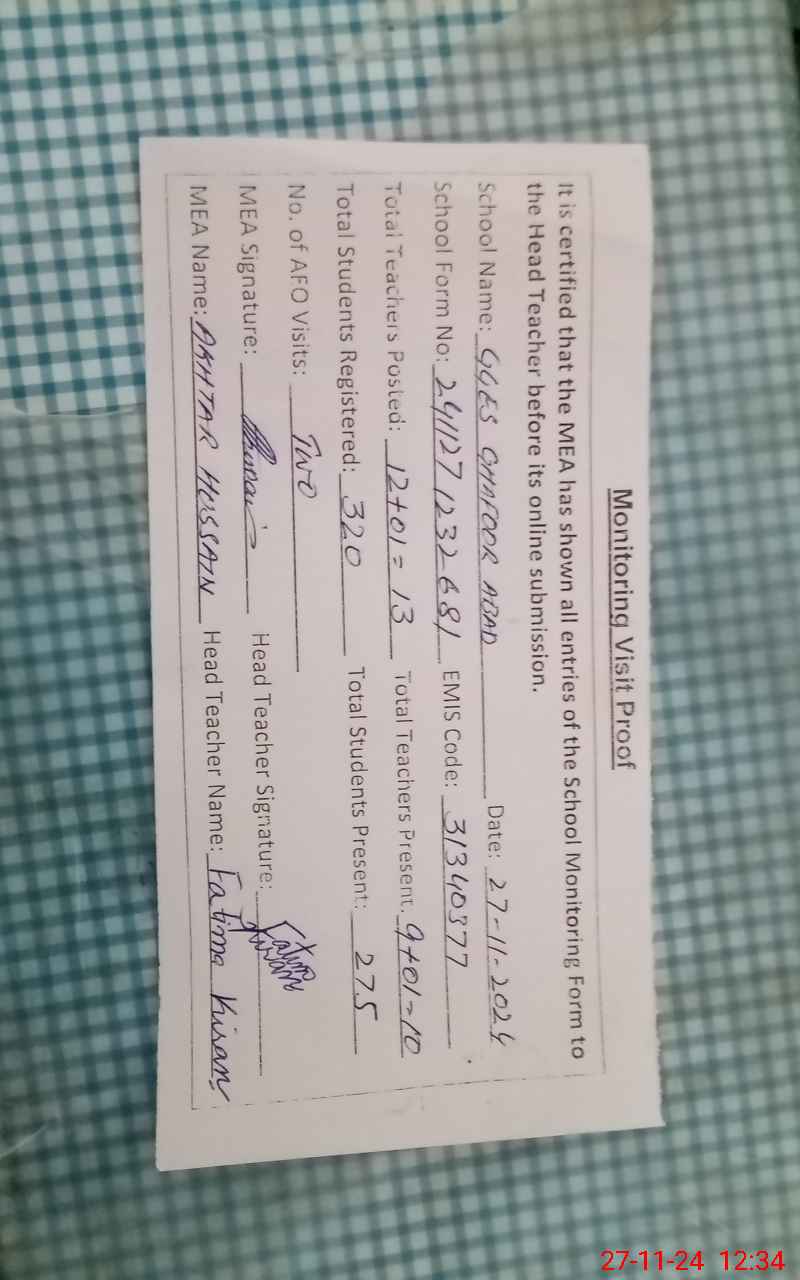 Monitoring Visit Proof
It is certified that the MEA has shown all entries of the School Monitoring Form to
the Head Teacher before its online submission.
School Name: GGES GHAFOOR ABAD Date: 27-11-2024
School Form No: 241127 1232681 EMIS Code: 31340377
Total Teachers Posted: 12+01=13 Total Teachers Present: 9+01=10
Total Students Registered: 320 Total Students Present: 275
No. of AFO Visits: TWO
MEA Signature: Head Teacher Signature: Fatima
MEA Name: AKHTAR HUSSAIN Head Teacher Name: Fatima
27-11-24 12:34